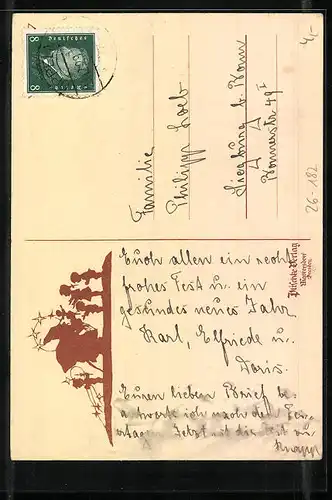 8 Deutsches Reich 8
4,-
Familie
Philipp Loeb
Siegburg b. Bonn
Bonnerstr. 49 I
26-182
Euch allen ein recht
frohes Fest u. ein
gesundes neues Jahr
Karl, Elfriede u.
Doris.
Euren lieben Brief be-
antworte ich nach den Feier-
tagen. Jetzt ist die Zeit zu
knapp
Verlag